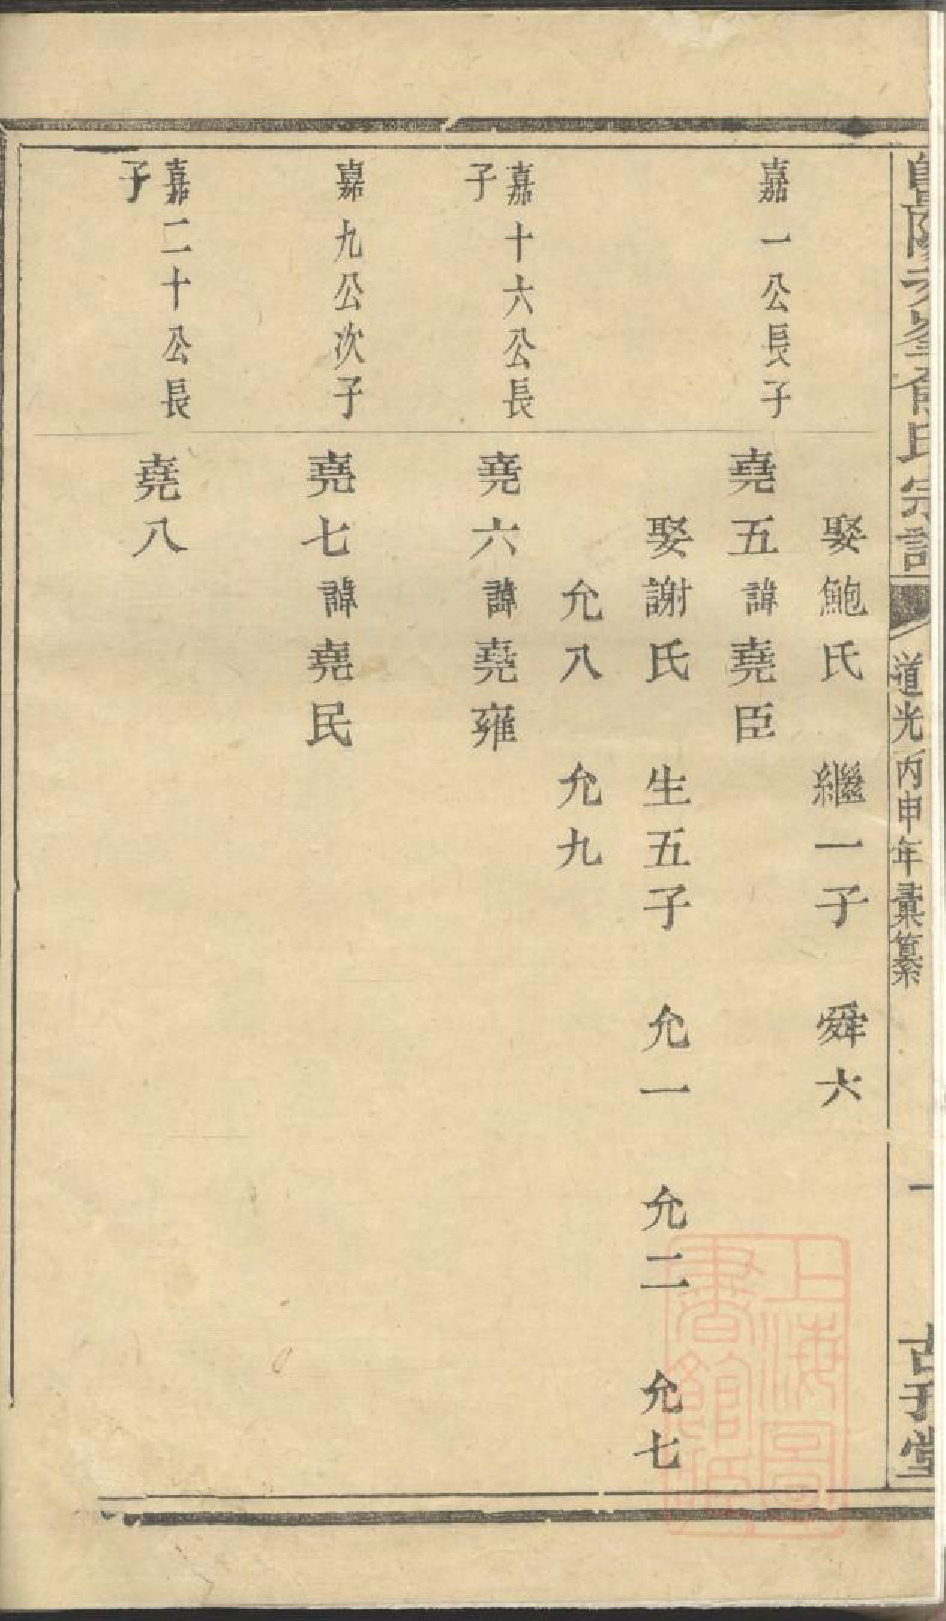 氏宗譜
道光丙申年彙纂
一
堂
娶鮑氏 繼一子 舜六
嘉一公長子
堯五諱堯臣
娶謝氏 生五子 允一 允二 允七
允八 允九
嘉十六公長
子
堯六諱堯雍
嘉九公次子
堯七諱堯民
嘉二十公長
子
堯八
上海圖
書館藏